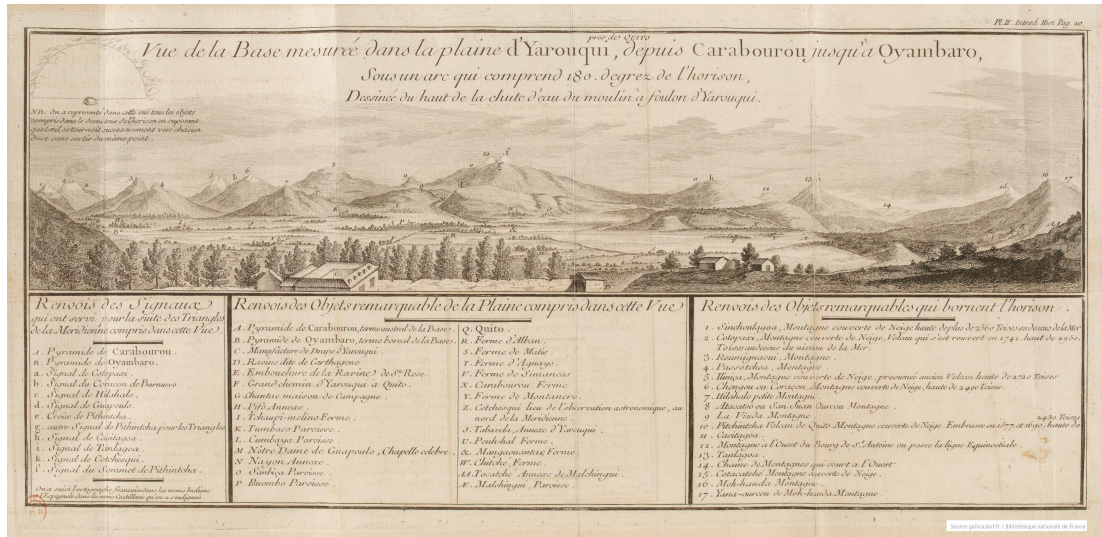 Pl. II. Introd. Hist. Pag. 20
près de QUITO
Vue de la Base mesurée dans la plaine d'Yarouqui, depuis Carabourou jusqu'à Oyambaro,
Sous un arc qui comprend 180. degrez de l'horison,
Dessinée du haut de la chute d'eau du moulin à foulon d'Yarouqui.
NB. On a representé dans cette vue tous les objets
compris dans le demi tour de l'horison en suposant
que l'oeil se tournoit successivement vers chacun
d'eux sans sortir du même point.
Renvois des Signaux
qui ont servi pour la suite des Triangles
de la Meridienne compris dans cette Vue
A. Pyramide de Carabourou.
B. Pyramide de Oyambaro.
a. Signal de Cotopaxi.
b. Signal du Coraçon de Barnuevo
c. Signal de Hilahalo.
d. Signal de Guapoulo.
e. Croix de Pithintcha.
g. autre Signal de Pithintcha pour les Triangles
h. Signal de Cantagoa.
i. Signal de Tanlagoa.
k. Signal de Cotchesqui.
f. Signal du Sommet de Pithintcha.
On a suivi l'ortografe françoise dans les noms Indiens
et l'Espagnole dans les noms Castillans qu'on a soulignés.
Renvois des Objets remarquable de la Plaine compris dans cette Vue
A. Pyramide de Carabourou, terme austral de la Base.
B. Pyramide de Oyambaro, terme boreal de la Base.
C. Manufacture de Draps d'Yarouqui
D. Ravine dite de Carthagene
E. Embouchure de la Ravine de Ste Rose.
F. Grand chemin d'Yarouqui à Quito.
G. Chantac maison de Campagne.
H. Pifo Annexe.
I. Tchaupi-molino Ferme.
K. Tumbaco Paroisse.
L. Cumbaya Paroisse.
M. Notre Dame de Guapoulo, Chapelle celebre.
N. Nayon Annexe.
O. Sambiça Paroisse.
P. Buembo Paroisse.
Q. Quito.
R. Ferme d'Alban.
S. Ferme de Matis.
T. Ferme d'Aguayo.
V. Ferme de Simancas
X. Carabourou Ferme
Y. Ferme de Montanero.
Z. Cotchesqui lieu de l'observation astronomique, au
nord de la Meridienne.
J. Tabavela, Annexe d'Yarouqui
U. Poukhal Ferme.
&. Mangaouantac Ferme
W. Chitche, Ferme.
AA. Tocatche Annexe de Malchingui.
Æ. Malchingui, Paroisse
Renvois des Objets remarquables qui bornent l'horison.
1. Sinchoulagoa, Montagne couverte de Neige haute de plus de 2560 Toises au dessus de la Mer
2. Cotopaxi, Montagne couverte de Neige, Volcan qui s'est rouvert en 1742. haut de 2950.
Toises au dessus du niveau de la Mer.
3. Roumignaoui, Montagne.
4. Passotchoa, Montagne
5. Iliniça, Montagne couverte de Neige, presumée ancien Volcan haute de 2720 Toises
6. Chengou ou Coraçon, Montagne couverte de Neige, haute de 2490 Toises.
7. Hilahalo petite Montagne
8. Atacatso ou San Juan Ourcou Montagne.
9. La Viuda Montagne 2430 Toises
10. Pitchintcha Volcan de Quito Montagne couverte de Neige. Embrasée en 1577. et 1690. haute de
11. Cantagoa.
12. Montagne à l'Ouest du Bourg de St Antoine ou passe la ligne Equinoctiale.
13. Tanlagoa.
14. Chaine de Montagnes qui court à l'Ouest
15. Cotacatche Montagne couverte de Neige.
16. Moh-handa Montagne.
17. Yana-ourcou de Moh-handa Montagne.
Source gallica.bnf.fr / Bibliothèque nationale de France